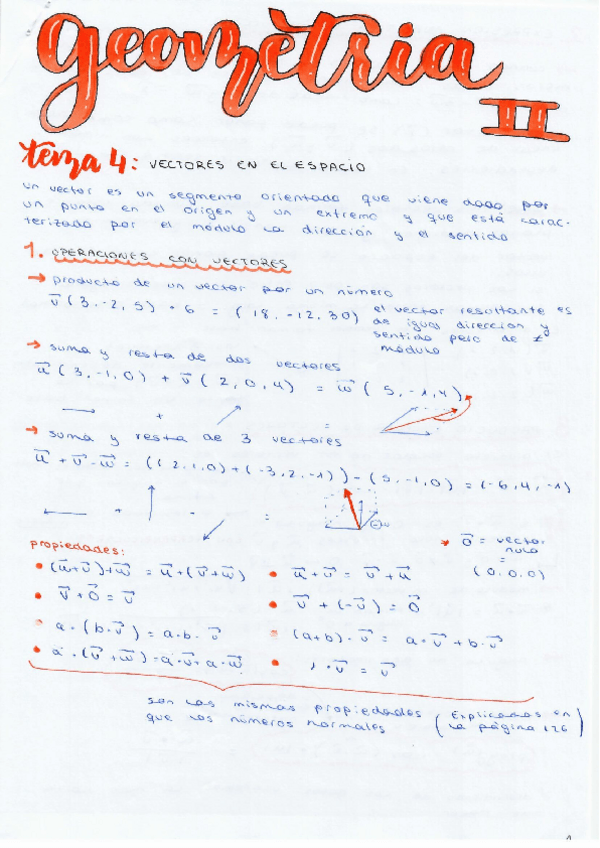 geomètria
II
tema 4: VECTORES EN EL ESPACIO
un vector es un segmento orientado que viene dado por
un punto en el origen y un extremo y que está carac-
terizado por el módulo la dirección y el sentido
1. OPERACIONES CON VECTORES
→ producto de un vector por un número
v⃗ (3,-2,5) · 6 = (18,-12,30)
el vector resultante es
de igual dirección y
sentido pero de ≠
módulo
→ suma y resta de dos vectores
u⃗ (3,-1,0) + v⃗ (2,0,4) = w⃗ (5,-1,4)
+ =
→ suma y resta de 3 vectores
u⃗ + v⃗ - w⃗ = ((2,1,0)+(-3,2,-1))-(5,-1,0) = (-6,4,-1)
+ - =
propiedades:
• (u⃗+v⃗)+w⃗ = u⃗+(v⃗+w⃗)
• v⃗+0⃗ = v⃗
• a·(b·v⃗) = a·b·v⃗
• a·(v⃗+w⃗)=a·v⃗+a·w⃗
• u⃗+v⃗ = v⃗+u⃗
• v⃗ + (-v⃗) = 0⃗
• (a+b)·v⃗ = a·v⃗+b·v⃗
• 1·v⃗ = v⃗
0⃗ = vector
nulo
=
(0,0,0)
son las mismas propiedades
que los números normales
(Explicadas en
la página 126)
1